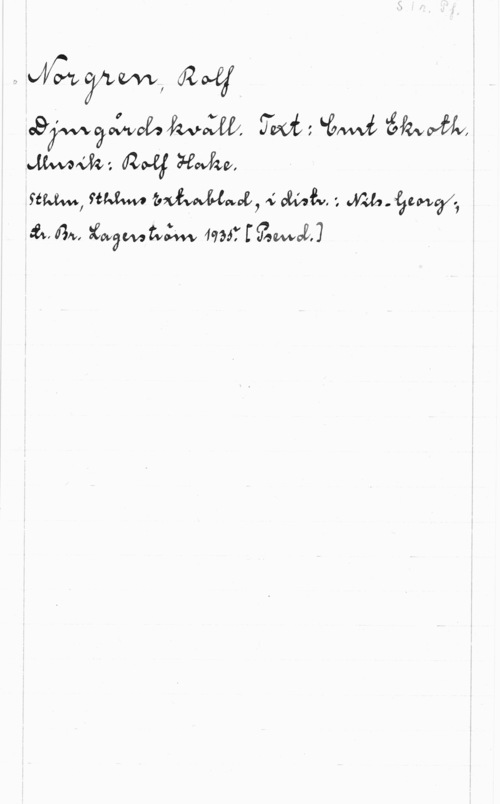 S l n. Pf.
Norgren, Rolf
Djurgårdskväll. Text: Curt Ekroth.
Musik: Rolf Hake.
Sthlm, Sthlms Extrablad, i distr.: Nils-Georg;
tr. Br. Lagerström 1935. [Pseud.]